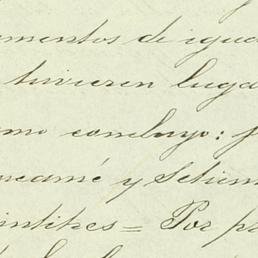 mentos de igua
tuvieren luga
mo concluyo: p
ueamé y Setiem
intitres = Por p